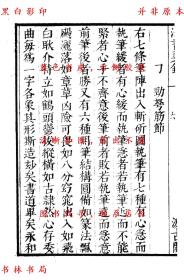 黑白影印
并非原本
勁弩筋節
右七條筆陣出入斬斫圖執筆有七種有心急而
執筆緩者有心緩而執筆急者若執筆近而不能
緊者心手不齊意後筆前者敗若執筆遠而急意
前筆後者勝又有六種用筆結構圓備如篆法飄
颺灑落如章草凶險可畏如八分窈窕出入如飛
白耿介特立如鶴頭鬱拔縱橫如古隸然心存委
曲每為一字各象其形斯造妙矣書道畢矣永和
书林书局